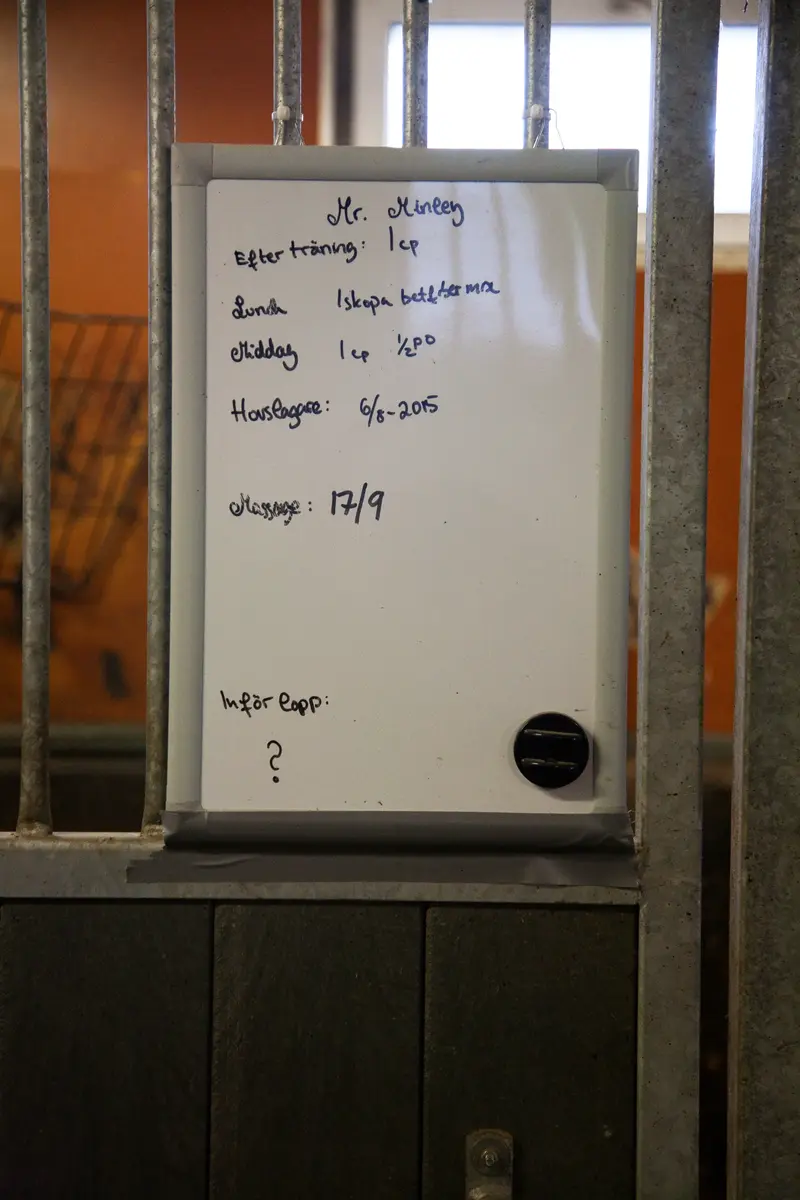 Mr. Minley
Efter träning: 1 cp
Lunch 1 skopa betfiber mix
Middag 1 cp ½ po
Hovslagare: 6/8-2015
Massage: 17/9
Inför lopp:
?